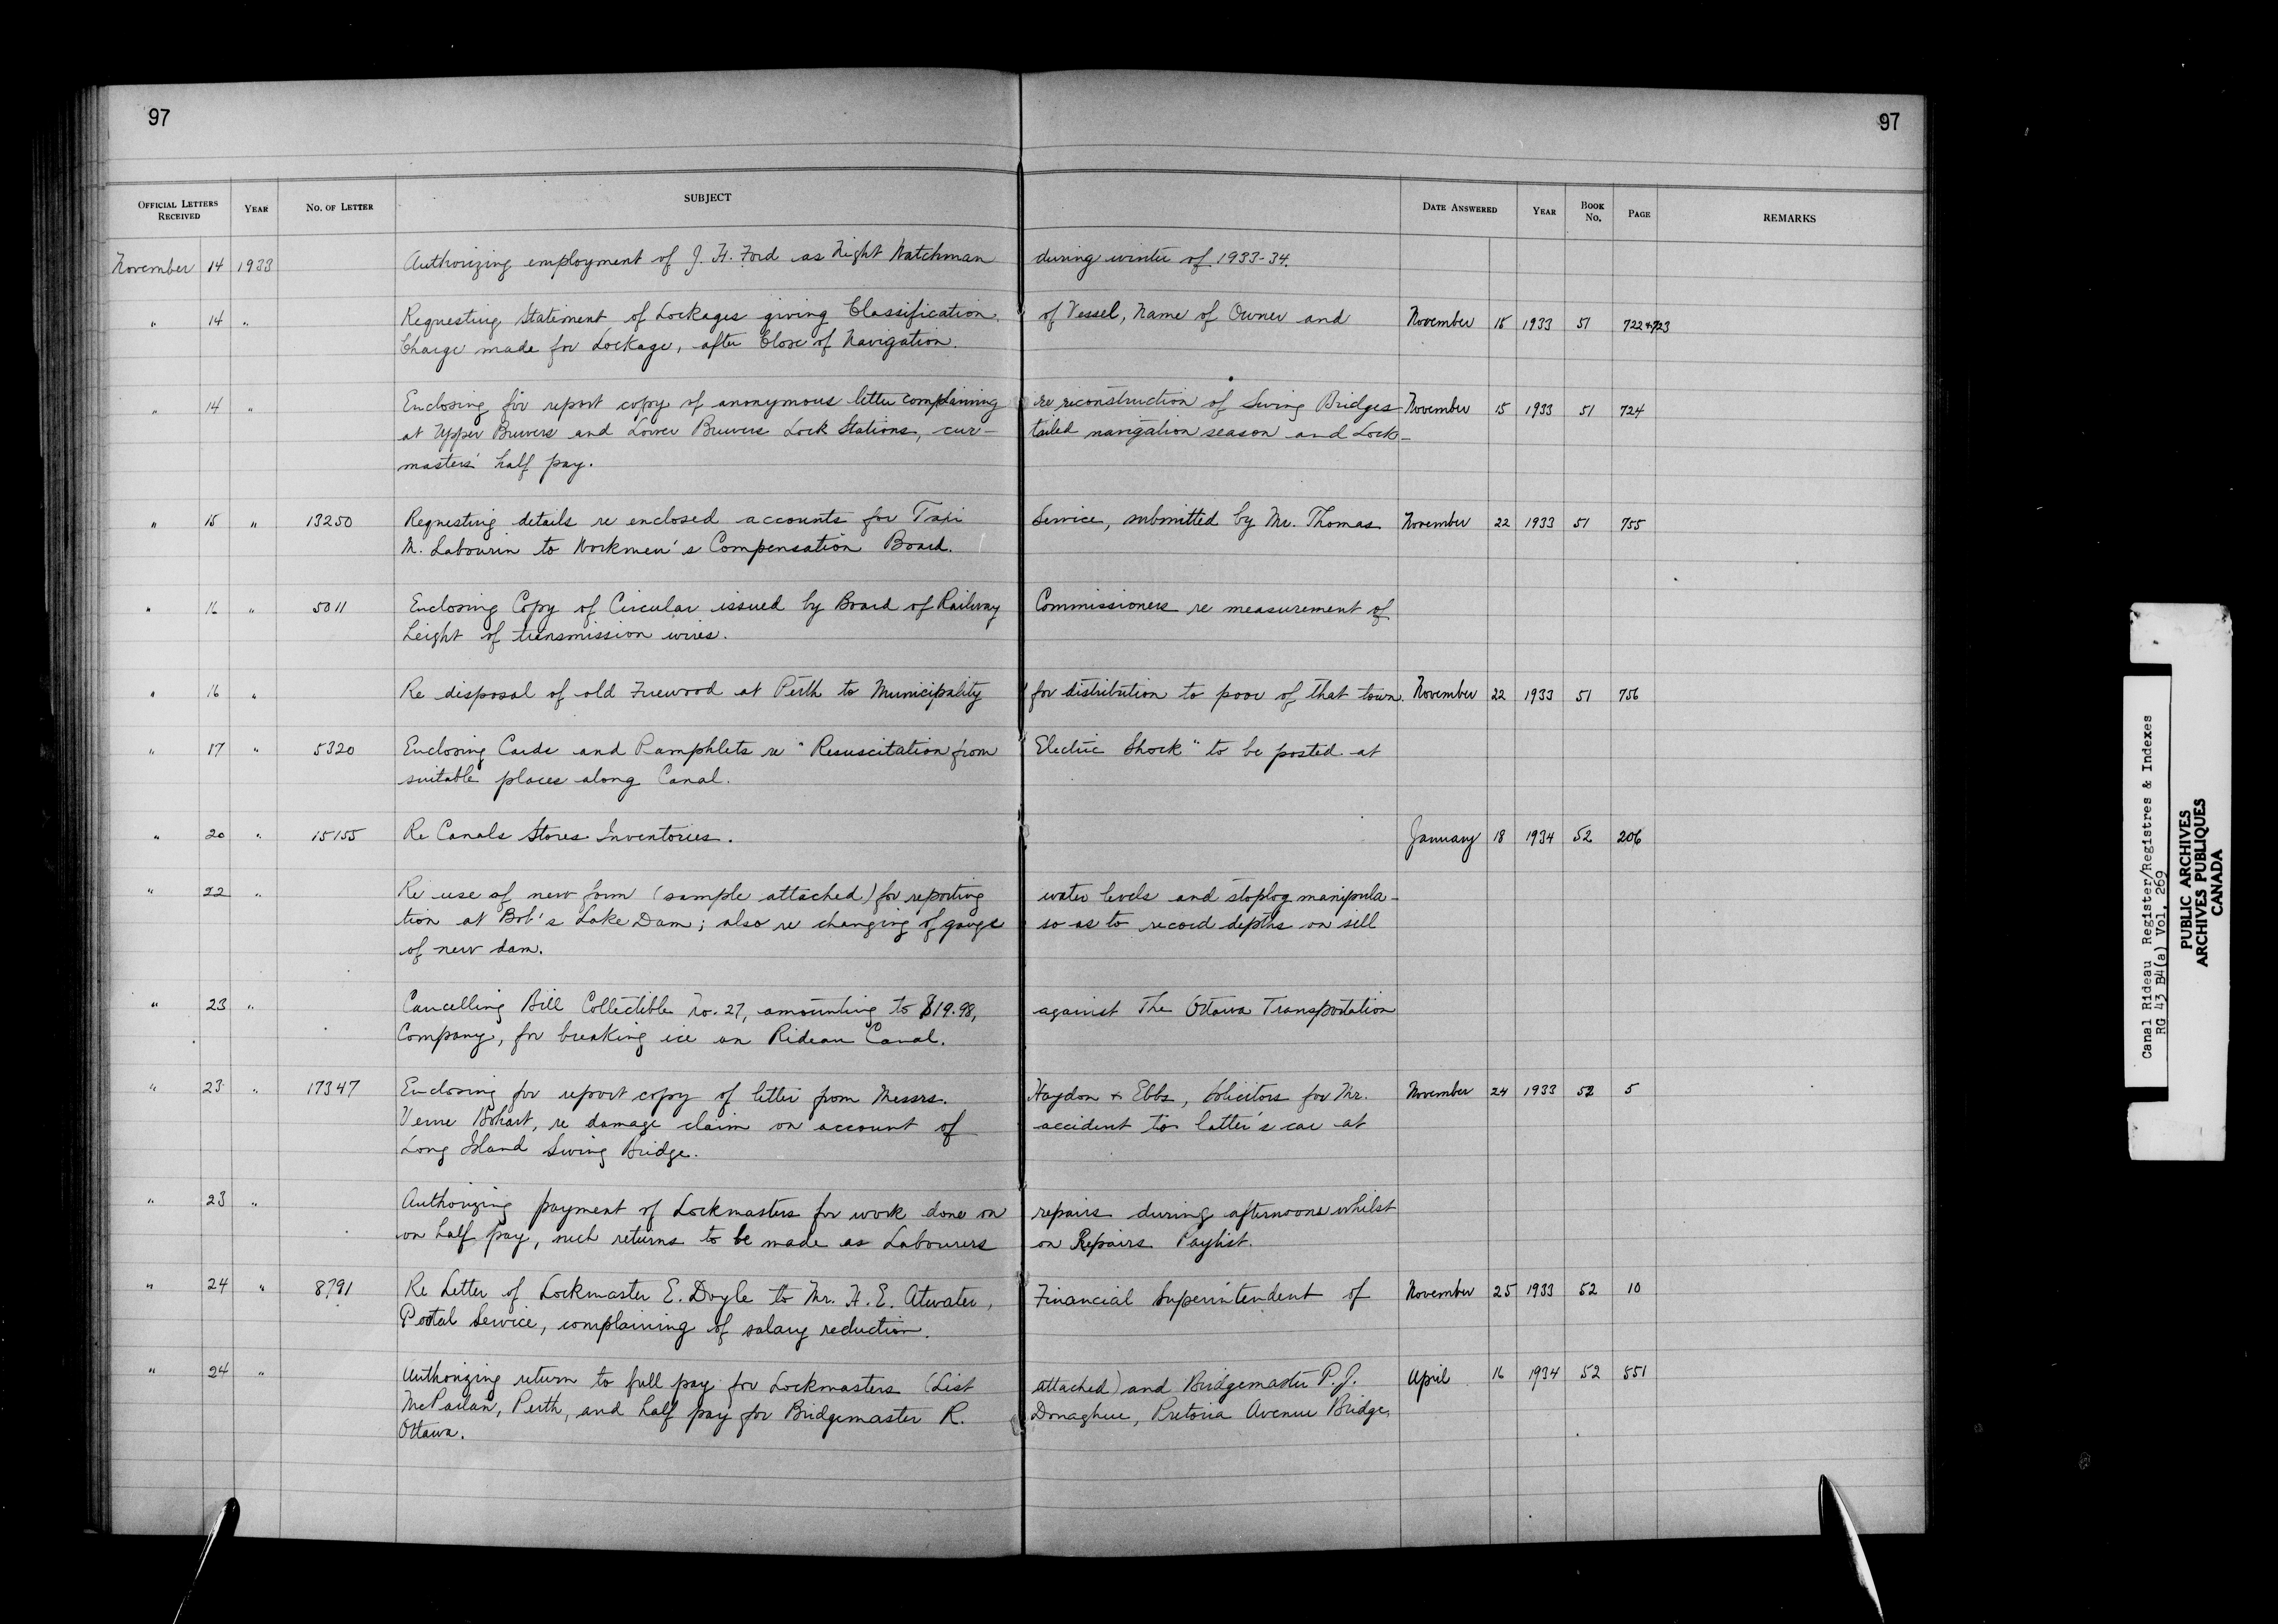 97
97
OFFICIAL LETTERS RECEIVED YEAR NO. OF LETTER SUBJECT DATE ANSWERED YEAR BOOK NO. PAGE REMARKS
November 14 1933 Authorizing employment of J. H. Ford as Night Watchman during winter of 1933-34.
" 14 " Requesting Statement of Lockages giving Classification of Vessel, Name of Owner and November 15 1933 51 722+723
Charge made for Lockage, after Close of Navigation.
" 14 " Enclosing for report copy of anonymous letter complaining re reconstruction of Swing Bridges November 15 1933 51 724
at Upper Brewers and Lower Brewers Lock Stations, cur- tailed navigation season and Lock-
masters' half pay.
" 15 " 13250 Requesting details re enclosed accounts for Taxi Service, submitted by Mr. Thomas November 22 1933 51 755
M. Labourin to Workmen's Compensation Board.
" 16 " 5011 Enclosing Copy of Circular issued by Board of Railway Commissioners re measurement of
height of transmission wires.
" 16 " Re disposal of old Firewood at Perth to Municipality for distribution to poor of that town. November 22 1933 51 756
" 17 " 5320 Enclosing Cards and Pamphlets re "Resuscitation from Electric Shock" to be posted at
suitable places along Canal.
" 20 " 15155 Re Canals Stores Inventories. January 18 1934 52 206
" 22 " Re use of new form (sample attached) for reporting water levels and stoplog manipula-
tion at Bob's Lake Dam; also re changing of gauge so as to record depths on sill
of new dam.
" 23 " Cancelling Bill Collectible No. 27, amounting to $19.98, against The Ottawa Transportation
Company, for breaking ice on Rideau Canal.
" 23 " 17347 Enclosing for report copy of letter from Messrs. Haydon & Ebbs, Solicitors for Mr. November 24 1933 52 5
Verne Bohart, re damage claim on account of accident to latter's car at
Long Island Swing Bridge.
" 23 " Authorizing payment of Lockmasters for work done on repairs during afternoons whilst
on half pay, such returns to be made as Labourers on Repairs Paylist.
" 24 " 8791 Re Letter of Lockmaster E. Doyle to Mr. H. E. Atwater, Financial Superintendent of November 25 1933 52 10
Postal Service, complaining of salary reduction.
" 24 " Authorizing return to full pay for Lockmasters (List attached) and Bridgemaster P. J. April 16 1934 52 551
McParlan, Perth, and half pay for Bridgemaster R. Donaghue, Pretoria Avenue Bridge,
Ottawa.
Canal Rideau Register/Registres & Indexes
RG 43 B4(a) Vol. 269
PUBLIC ARCHIVES
ARCHIVES PUBLIQUES
CANADA